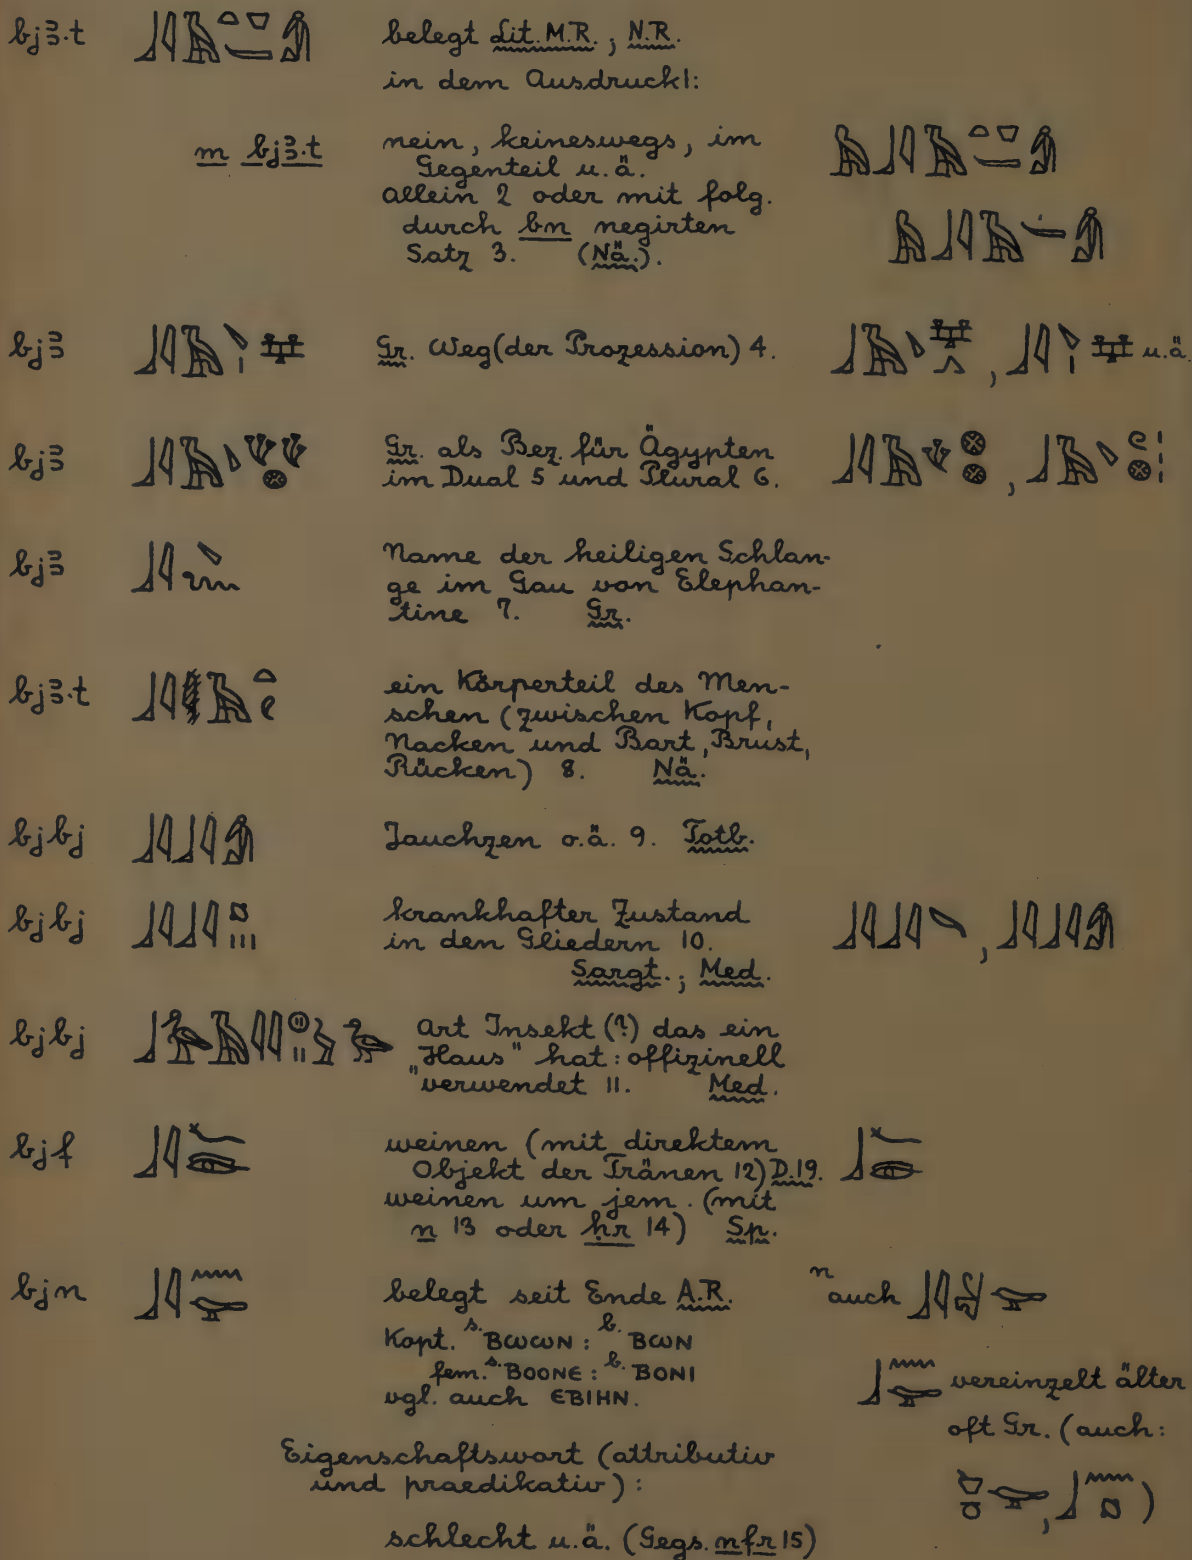 bjꜣ.t belegt Lit. M.R.; N.R.
in dem Ausdruck 1:
m bjꜣ.t nein, keineswegs, im
Gegenteil u.ä.
allein 2 oder mit folg.
durch bn negirten
Satz 3. (Nä.).
bjꜣ Gr. Weg (der Prozession) 4. , u.ä.
bjꜣ Gr. als Bez. für Ägypten
im Dual 5 und Plural 6. ,
bjꜣ Name der heiligen Schlan-
ge im Gau von Elephan-
tine 7. Gr.
bjꜣ.t ein Körperteil des Men-
schen (zwischen Kopf,
Nacken und Bart, Brust,
Rücken) 8. Nä.
bjbj Jauchzen o.ä. 9. Totb.
bjbj krankhafter Zustand
in den Gliedern 10. ,
Sargt.; Med.
bjbj Art Insekt (?) das ein
„Haus" hat: offizinell
verwendet 11. Med.
bjf weinen (mit direktem
Objekt der Tränen 12) D.19.
weinen um jem. (mit
n 13 oder ḥr 14) Sp.
bjn belegt seit Ende A.R. n auch
Kopt. s. ⲂⲰⲰⲚ: b. ⲂⲰⲚ
fem. s. ⲂⲞⲞⲚⲈ: b. ⲂⲞⲚⲒ vereinzelt älter
vgl. auch ⲈⲂⲒⲎⲚ.
oft Gr. (auch:
Eigenschaftswort (attributiv
und praedikativ): , )
schlecht u.ä. (Gegs. nfr 15)